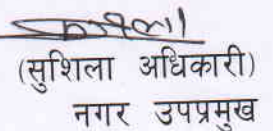 (सुशिला अधिकारी)
नगर उपप्रमुख